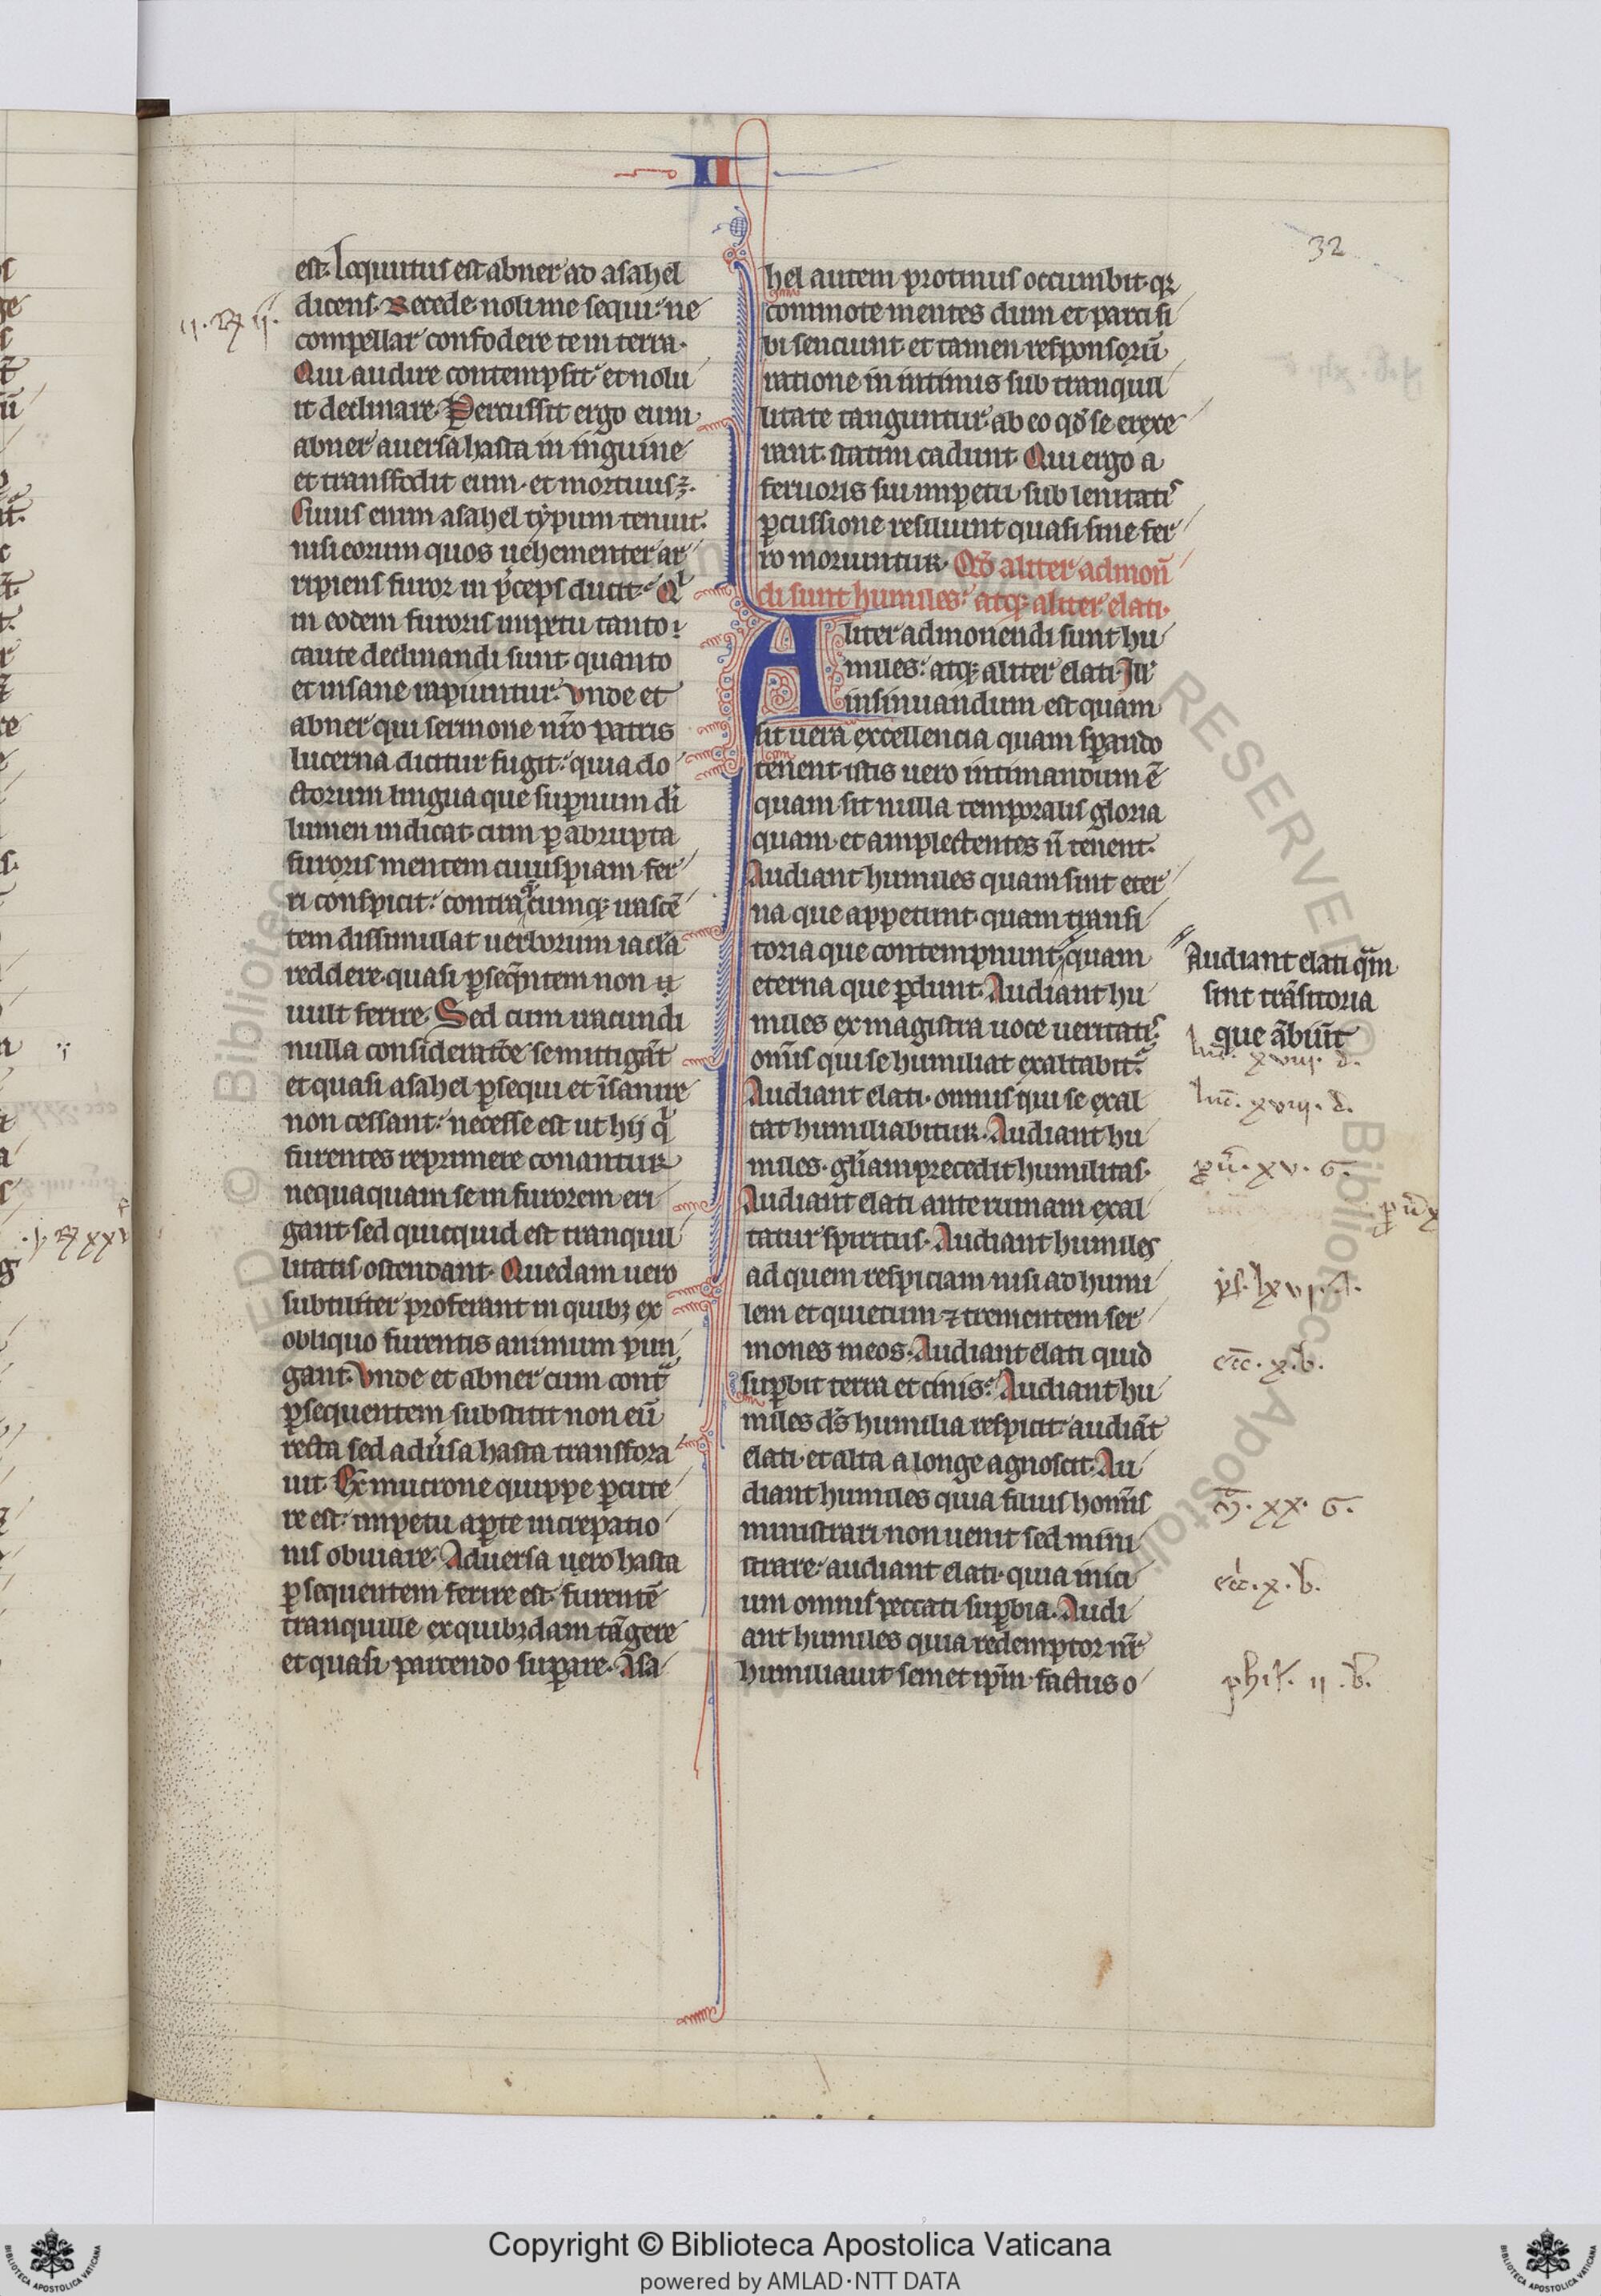 II
32
est. Locqutus est abner ad asahel
dicens. Recede noli me sequi. ne
compellar confodere te in terra.
Qui audire contempsit et nolu
it declinare. Percussit ergo eum
abner auersa hasta in inguine
et transfodit eum. et mortuus ÷.
Cuius enim asahel typum tenuit.
nisi eorum quos uehementer ar
ripiens furor in p̄ceps ducit. Qi
in eodem furoris impetu tanto
caute declinandi sunt quanto
et insane rapiuntur. Vnde et
abner qui sermone nr̄o patris
lucerna dicitur fugit. quia do
ctorum lingua que supernum di
lumen indicat cum ꝑ abrupta
furoris mentem cuiuspiam fer
ri conspicit. contraq cumqꝫ irascē
tem dissimulat uerborum iacl̄a
reddere quasi ꝑseqn̄tem non
uult ferire. Sed cum iracundi
nulla consideratōe se mittigāt
et quasi asahel ꝑsequi et īsanire
non cessant. necesse est ut hij qi
furentes reprimere conantur
nequaquam se in furorem eri
gant sed quicquid est tranquil
litatis ostendant. Quedam uero
subtiliter proferant in quibꝫ ex
obliquo furentis animum pun
gant. Vnde et abner cum contᵃ
ꝑsequentem substitit non eū
recta sed adu̾sa hasta transfora
uit. Ex mucrone quippe ꝑcute
re est. impetu aꝑte increpatio
nis obuiare. Aduersa uero hasta
ꝑsequentem ferire est. furentē
tranquille ex quibꝫdam tāgere
et quasi parcendo suꝑare. Asa
hel autem protinus occumbit. qꝛ
commote mentes dum et parci si
bi senciunt et tamen responsorū
ratione in intimis sub tranquil
litate tanguntur ab eo qđ se erexe
rant statim cadunt. Qui ergo a
feruoris sui impetu sub lenitatis
ꝑcussione resiliunt quasi sine fer
ro moriuntur. Qđ aliter admon̄
di sunt humiles. atqꝫ aliter elati.
Aliter admonendi sunt hu
miles. atqꝫ aliter elati. Ill̾
insinuandum est quam
sit uera excellencia quam sꝑando
tenent. istis uero intimandum ē
quam sit nulla temporalis gloria
quam et amplectentes n̄ tenent.
Audiant humiles quam sint eter
na que appetunt. quam transi
toria que contempnunt. quam
eterna que ꝑdunt. Audiant hu
miles ex magistra uoce ueritatis
omīs qui se humiliat exaltabitᵘ
Audiant elati. omnis qui se exal
tat humiliabitur. Audiant hu
miles. gl̄iam precedit humilitas.
Audiant elati ante ruinam exal
tatur spiritus. Audiant humiles
ad quem respiciam nisi ad humi
lem et quietum ⁊ trementem ser
mones meos. Audiant elati quid
suꝑbit terra et cinis. Audiant hu
miles dn̄s humilia respicit. audiāt
elati. et alta a longe agnoscit. Au
diant humiles quia filius homīs
ministrari non uenit sed mini
strare. audiant elati. quia inici
um omnis peccati suꝑbia. Audi
ant humiles quia redemptor nr̄
humiliauit semet ip̄m factus o
Audiant elati qᵃm
sint trāsitoria
que ābiūt
luc̄. xviij. d.
luc̄. xviij. d.
pu̾. xv. G.
ecc̄. x. b.
M̄. xx. G.
ecc̾. x. b.
phil̾. ii. b.
Copyright © Biblioteca Apostolica Vaticana
powered by AMLAD·NTT DATA